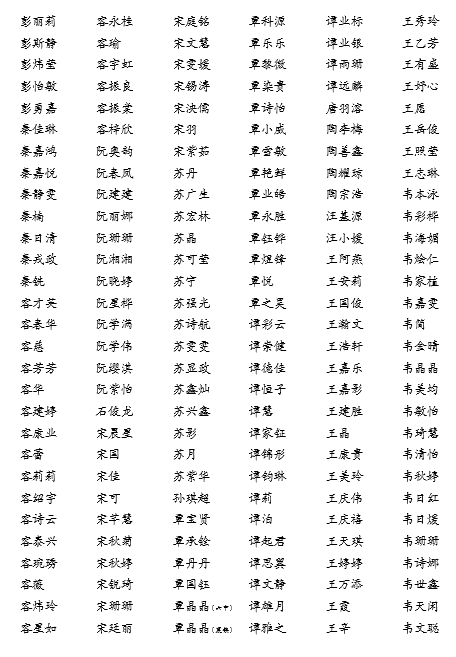 彭丽莉 容永桂 宋庭铭 覃科源 谭业标 王秀玲
彭斯静 容瑜 宋文慧 覃乐乐 谭业银 王乙芳
彭炜莹 容宇虹 宋雯媛 覃黎傲 谭雨珊 王有盛
彭怡敏 容振良 宋锡涛 覃染贵 谭远麟 王妤心
彭勇嘉 容振棠 宋泱儒 覃诗怡 唐羽溶 王愿
秦佳琳 容梓欣 宋羽 覃小威 陶李梅 王岳俊
秦嘉鸿 阮奥钧 宋紫茹 覃雪敏 陶善鑫 王照莹
秦嘉悦 阮春凤 苏丹 覃艳鲜 陶耀琼 王志琳
秦静雯 阮建建 苏广生 覃业皓 陶宗浩 韦本泳
秦楠 阮丽娜 苏宏林 覃永胜 汪基源 韦彩桦
秦日清 阮珊珊 苏晶 覃钰铧 汪小媛 韦海媚
秦戎政 阮湘湘 苏可莹 覃煜锋 王阿燕 韦烩仁
秦铣 阮晓婷 苏宁 覃悦 王安莉 韦家植
容才英 阮星桦 苏强光 覃之昊 王国俊 韦嘉雯
容春华 阮学满 苏诗航 谭彩云 王瀚文 韦简
容慈 阮学伟 苏雯雯 谭崇健 王浩轩 韦金晴
容芳芳 阮缨淇 苏显政 谭德佳 王嘉乐 韦晶晶
容华 阮紫怡 苏鑫灿 谭恒子 王嘉彩 韦美均
容建婷 石俊龙 苏兴鑫 谭慧 王建胜 韦敏怡
容康业 宋晨星 苏影 谭家钲 王晶 韦琦慧
容蕾 宋国 苏月 谭锦彤 王康贵 韦清怡
容莉莉 宋佳 苏紫华 谭钧琳 王美玲 韦秋婷
容绍宇 宋可 孙琪超 谭莉 王庆伟 韦日红
容诗云 宋芊慧 覃宝贤 谭泊 王庆禧 韦日媛
容泰兴 宋秋菊 覃承铨 谭起君 王天琪 韦珊珊
容琬琇 宋秋婷 覃丹丹 谭思翼 王婷婷 韦诗娜
容薇 宋锐琦 覃国钰 谭文静 王万添 韦世鑫
容炜玲 宋珊珊 覃晶晶(六中) 谭雄月 王霞 韦天闲
容星如 宋廷丽 覃晶晶 谭雅之 王辛 韦文聪